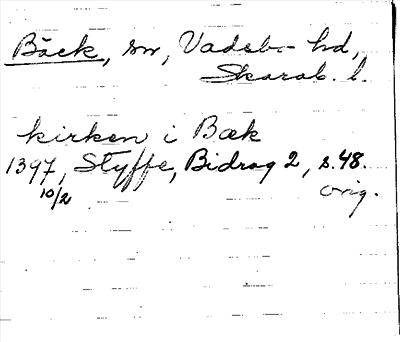 Bäck, sn, Vadsbo hd,
Skarab. l.
kirken i Bæk
1397, Styffe, Bidrag 2, s. 48.
10/2 orig.